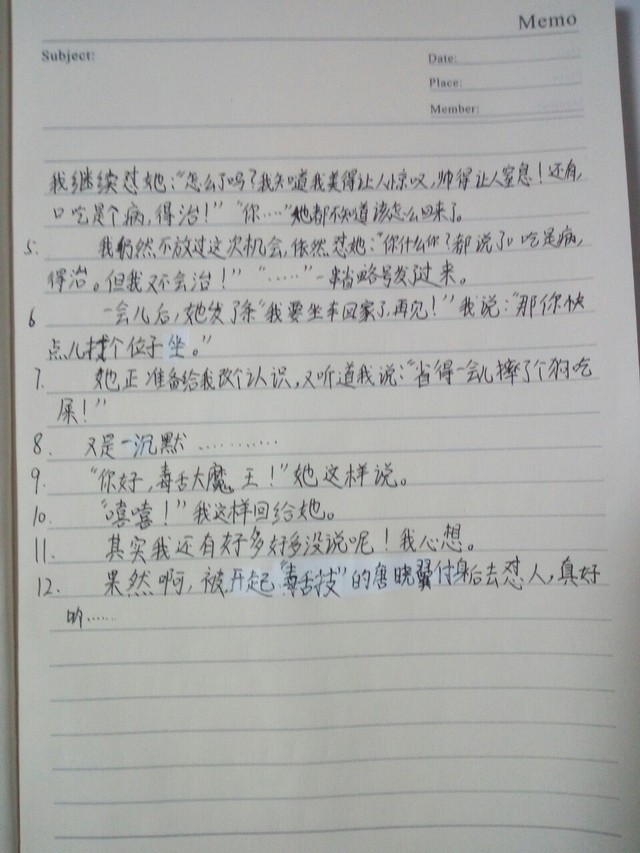 Memo
Subject:
Date:
Place:
Member:
我继续怼她：“怎么了吗？我知道我美得让人惊叹，帅得让人窒息！还有，
口吃是个病，得治！”“你……”她都不知道该怎么回来了。
5. 我仍然不放过这次机会，依然怼她：“你什么你？都说了口吃是病，
得治。但我又不会治！”“……”一串省略号发过来。
6 一会儿后，她发了条“我要坐车回家了，再见！”我说：“那你快
点儿找个位子坐。”
7. 她正准备给我改个认识，又听道我说：“省得一会儿摔了个狗吃
屎！”
8. 又是一沉默…………
9. “你好，毒舌大魔王！”她这样说。
10. “嘻嘻！”我这样回给她。
11. 其实我还有好多好多没说呢！我心想。
12. 果然啊，被开起“毒舌技”的唐晓翼付身后去怼人，真好
哟……